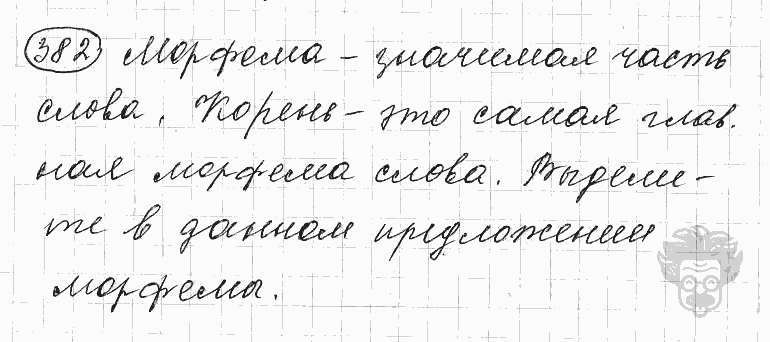 382 Морфема – значимая часть
слова. Корень – это самая глав.
ная морфема слова. Выдели–
те в данном предложении
морфемы.